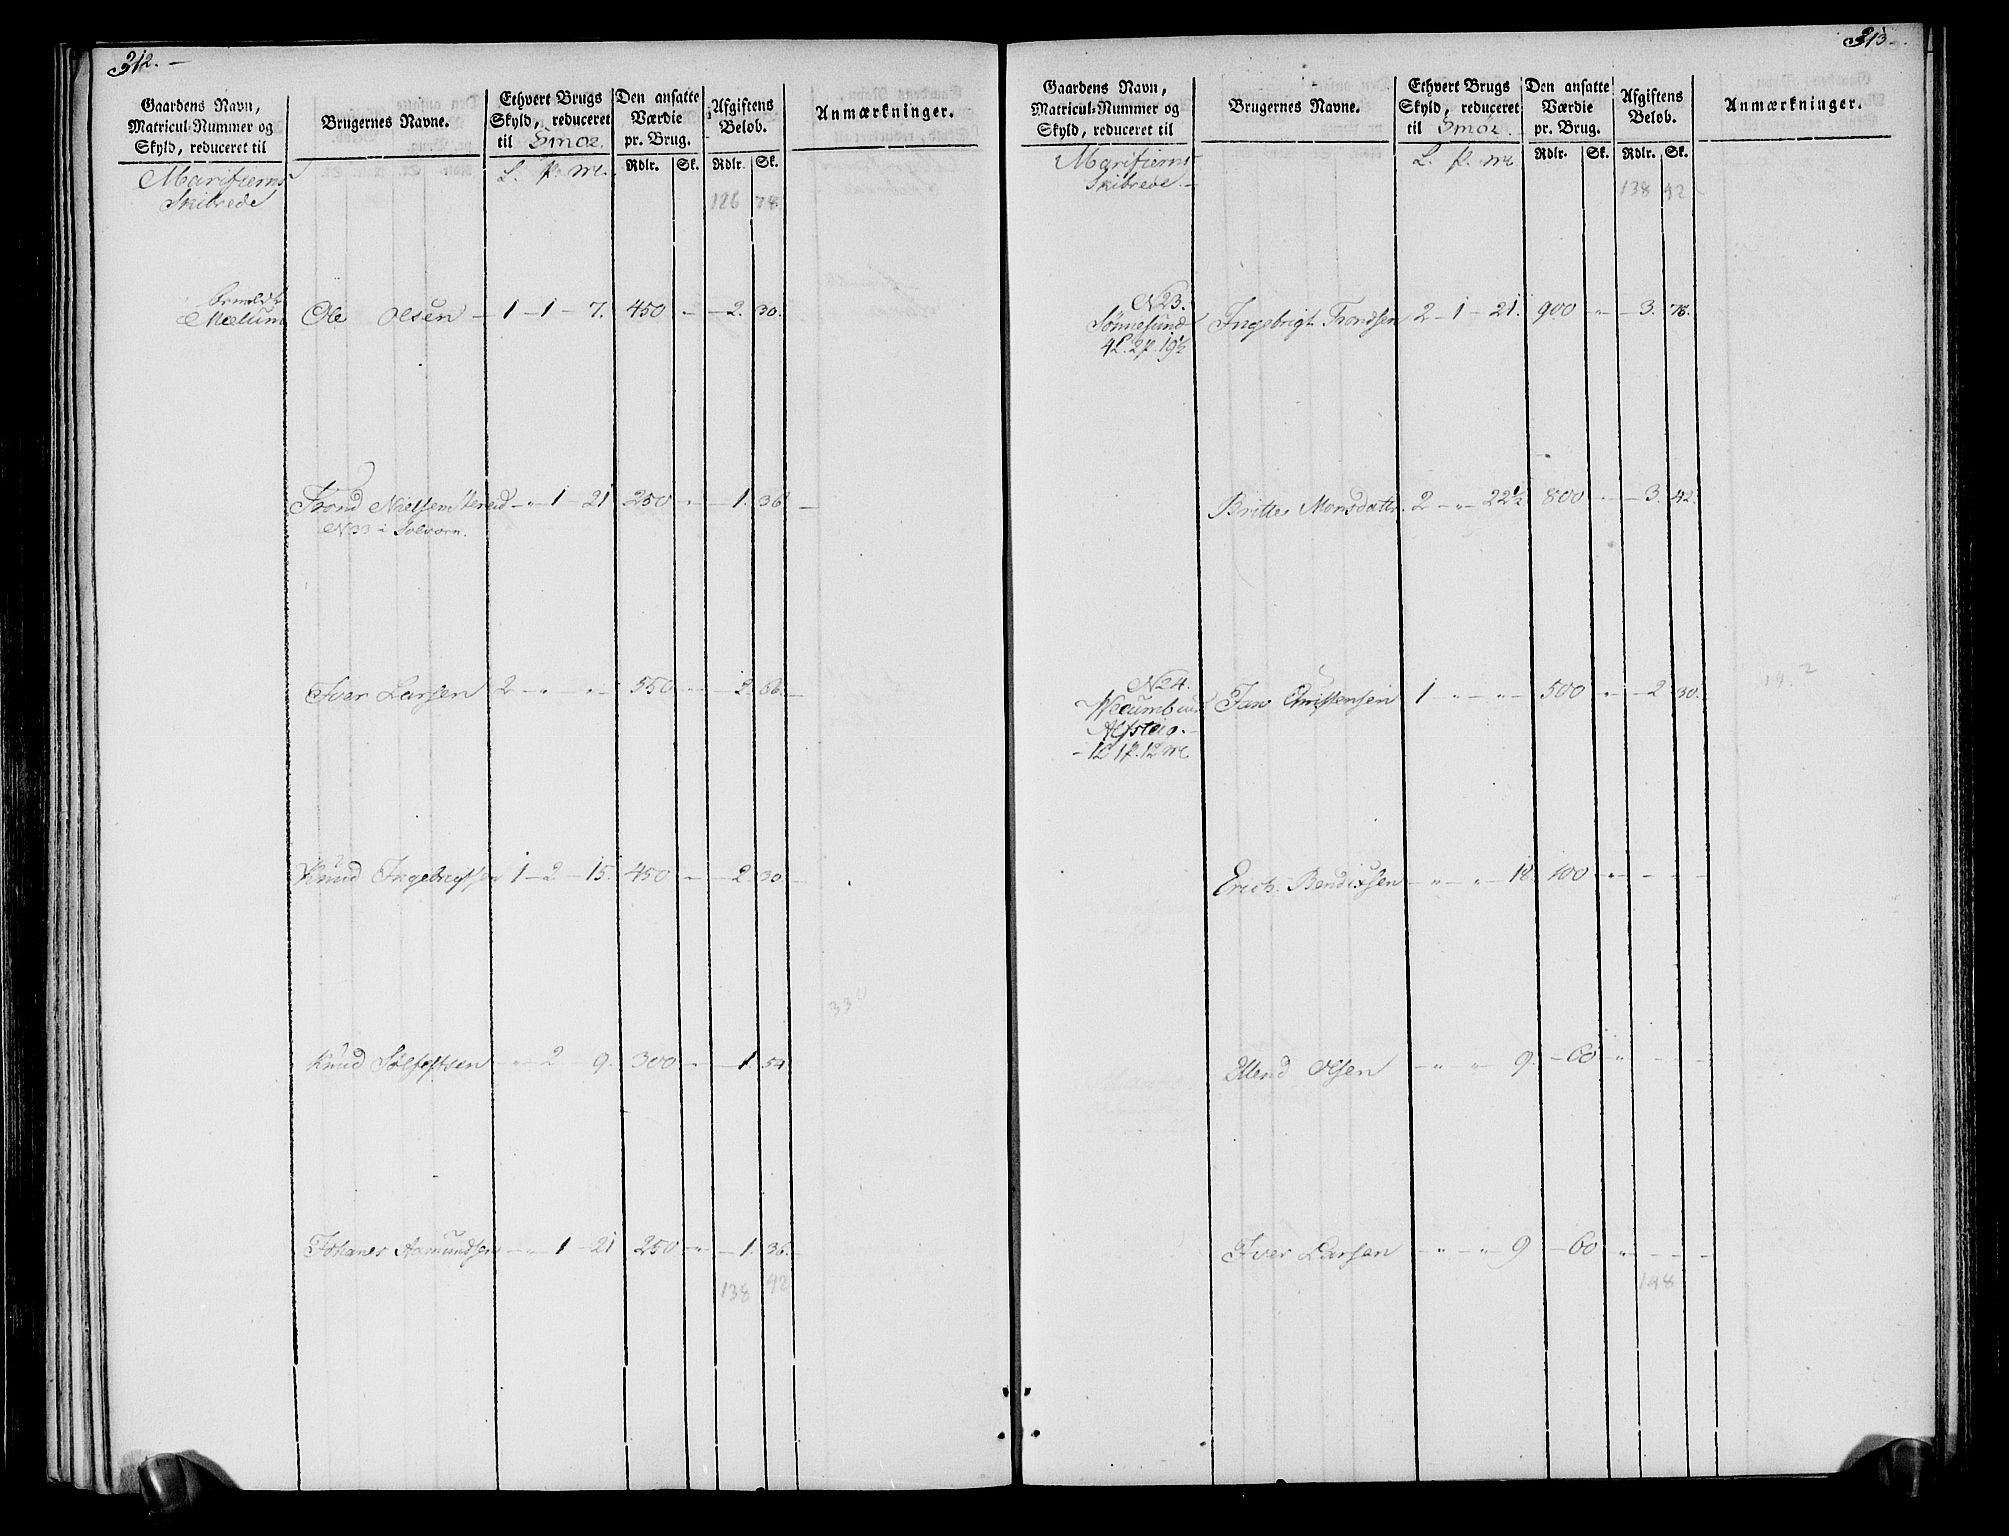 312.
Gaardens Navn, Matricul-Nummer og Skyld, reduceret til
Brugernes Navne.
Ethvert Brugs Skyld, reduceret til Smör
Den ansatte Værdie pr. Brug.
Afgiftens Beløb.
Anmærkninger.
L. p. mk. Rdlr. Sk. Rdlr. Sk.
Marifierns
Skibrede
126 78
Mælum Ole Olsen — 1 — 1 — 7. 450 " — 2. 30.
Trond Nielsen — " — 1 — 21 250 " — 1. 36 —
N 33 i Solvorn.
Iver Larsen 2 — " — " — 550 " — 2. 66. —
Knud Ingebrigtsen 1 — 2 — 15. 450 " — 2. 30. —
Knud Sølfestsen — " — 2 — 9. 300 " — 1. 54.
33
Johanes Aamundsen — " — 1 — 21 250 " — 1. 36.
138 42
313.
Gaardens Navn, Matricul-Nummer og Skyld, reduceret til
Brugernes Navne.
Ethvert Brugs Skyld, reduceret til Smör.
Den ansatte Værdie pr. Brug.
Afgiftens Beløb.
Anmærkninger.
L. p. mk Rdlr. Sk. Rdlr. Sk.
Marifierns
Skibrede.
138 42
N 23.
Sönnesund Ingebrigt Trondsen 2 — 1 — 21. 900 " — 3. 78.
4L. 2p. 19½
Britte Monsdattr. 2 — " — 22½ 800 " — 3. 42.
N 24.
Jan Christensen 1 — " — " — 500 " — 2. 30.
Alfsteig.
1L 1p. 12 mk
Erich Bendixsen — " — " — 18. 100 " — — —
Ellend Olsen — " — " — 9. — 60 " — — —
Iver Larsen — " — " — 9 — 60 " — — —
148